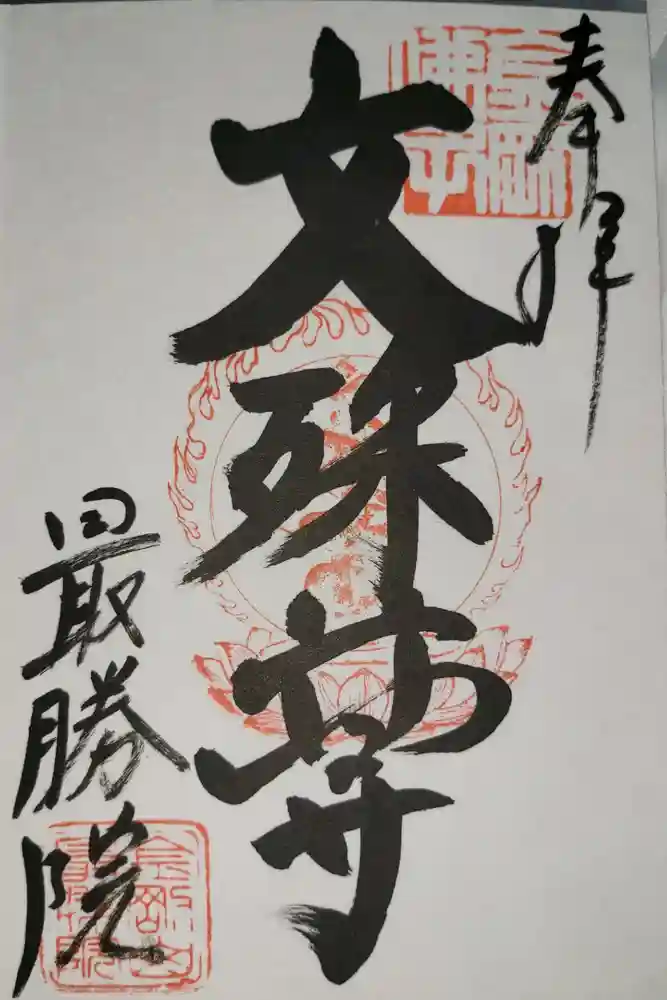 奉拝
文殊尊
最勝院